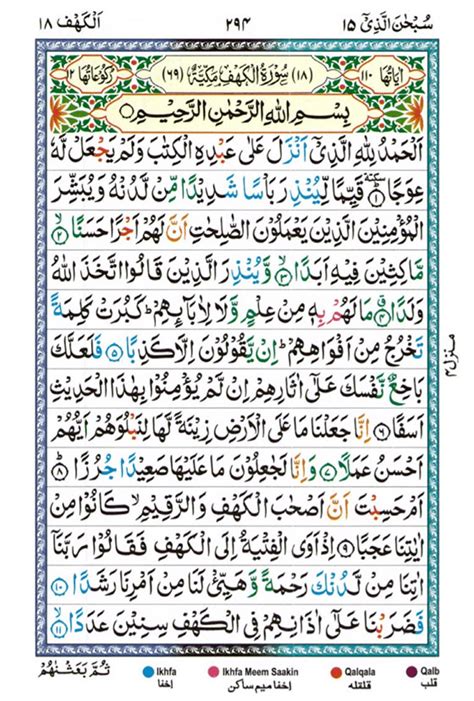 سُبْحٰنَ الَّذِيْٓ ١٥
٢٩٤
اَلْكَهْف ١٨
اٰيَاتُهَا ١١٠
(١٨) سُوْرَةُ الْكَهْفِ مَكِّيَّةٌ (٦٩)
رُكُوْعَاتُهَا ١٢
بِسْمِ اللّٰهِ الرَّحْمٰنِ الرَّحِيْمِ
اَلْحَمْدُ لِلّٰهِ الَّذِيْٓ اَنْزَلَ عَلٰى عَبْدِهِ الْكِتٰبَ وَلَمْ يَجْعَلْ لَّهٗ
عِوَجًا ۜ ١ قَيِّمًا لِّيُنْذِرَ بَاْسًا شَدِيْدًا مِّنْ لَّدُنْهُ وَيُبَشِّرَ
الْمُؤْمِنِيْنَ الَّذِيْنَ يَعْمَلُوْنَ الصّٰلِحٰتِ اَنَّ لَهُمْ اَجْرًا حَسَنًا ٢
مَّاكِثِيْنَ فِيْهِ اَبَدًا ٣ وَّيُنْذِرَ الَّذِيْنَ قَالُوا اتَّخَذَ اللّٰهُ
وَلَدًا ٤ مَا لَهُمْ بِهٖ مِنْ عِلْمٍ وَّلَا لِاٰبَآئِهِمْ ؕ كَبُرَتْ كَلِمَةً
تَخْرُجُ مِنْ اَفْوَاهِهِمْ ؕ اِنْ يَّقُوْلُوْنَ اِلَّا كَذِبًا ٥ فَلَعَلَّكَ
بَاخِعٌ نَّفْسَكَ عَلٰٓى اٰثَارِهِمْ اِنْ لَّمْ يُؤْمِنُوْا بِهٰذَا الْحَدِيْثِ
اَسَفًا ٦ اِنَّا جَعَلْنَا مَا عَلَى الْاَرْضِ زِيْنَةً لَّهَا لِنَبْلُوَهُمْ اَيُّهُمْ
اَحْسَنُ عَمَلًا ٧ وَاِنَّا لَجٰعِلُوْنَ مَا عَلَيْهَا صَعِيْدًا جُرُزًا ٨
اَمْ حَسِبْتَ اَنَّ اَصْحٰبَ الْكَهْفِ وَالرَّقِيْمِ ۙ كَانُوْا مِنْ
اٰيٰتِنَا عَجَبًا ٩ اِذْ اَوَى الْفِتْيَةُ اِلَى الْكَهْفِ فَقَالُوْا رَبَّنَآ
اٰتِنَا مِنْ لَّدُنْكَ رَحْمَةً وَّهَيِّئْ لَنَا مِنْ اَمْرِنَا رَشَدًا ١٠
فَضَرَبْنَا عَلٰٓى اٰذَانِهِمْ فِي الْكَهْفِ سِنِيْنَ عَدَدًا ١١
منزل ٤
ثُمَّ بَعَثْنٰهُمْ
Ikhfa اخفا
Ikhfa Meem Saakin اخفا ميم ساكن
Qalqala قلقله
Qalb قلب